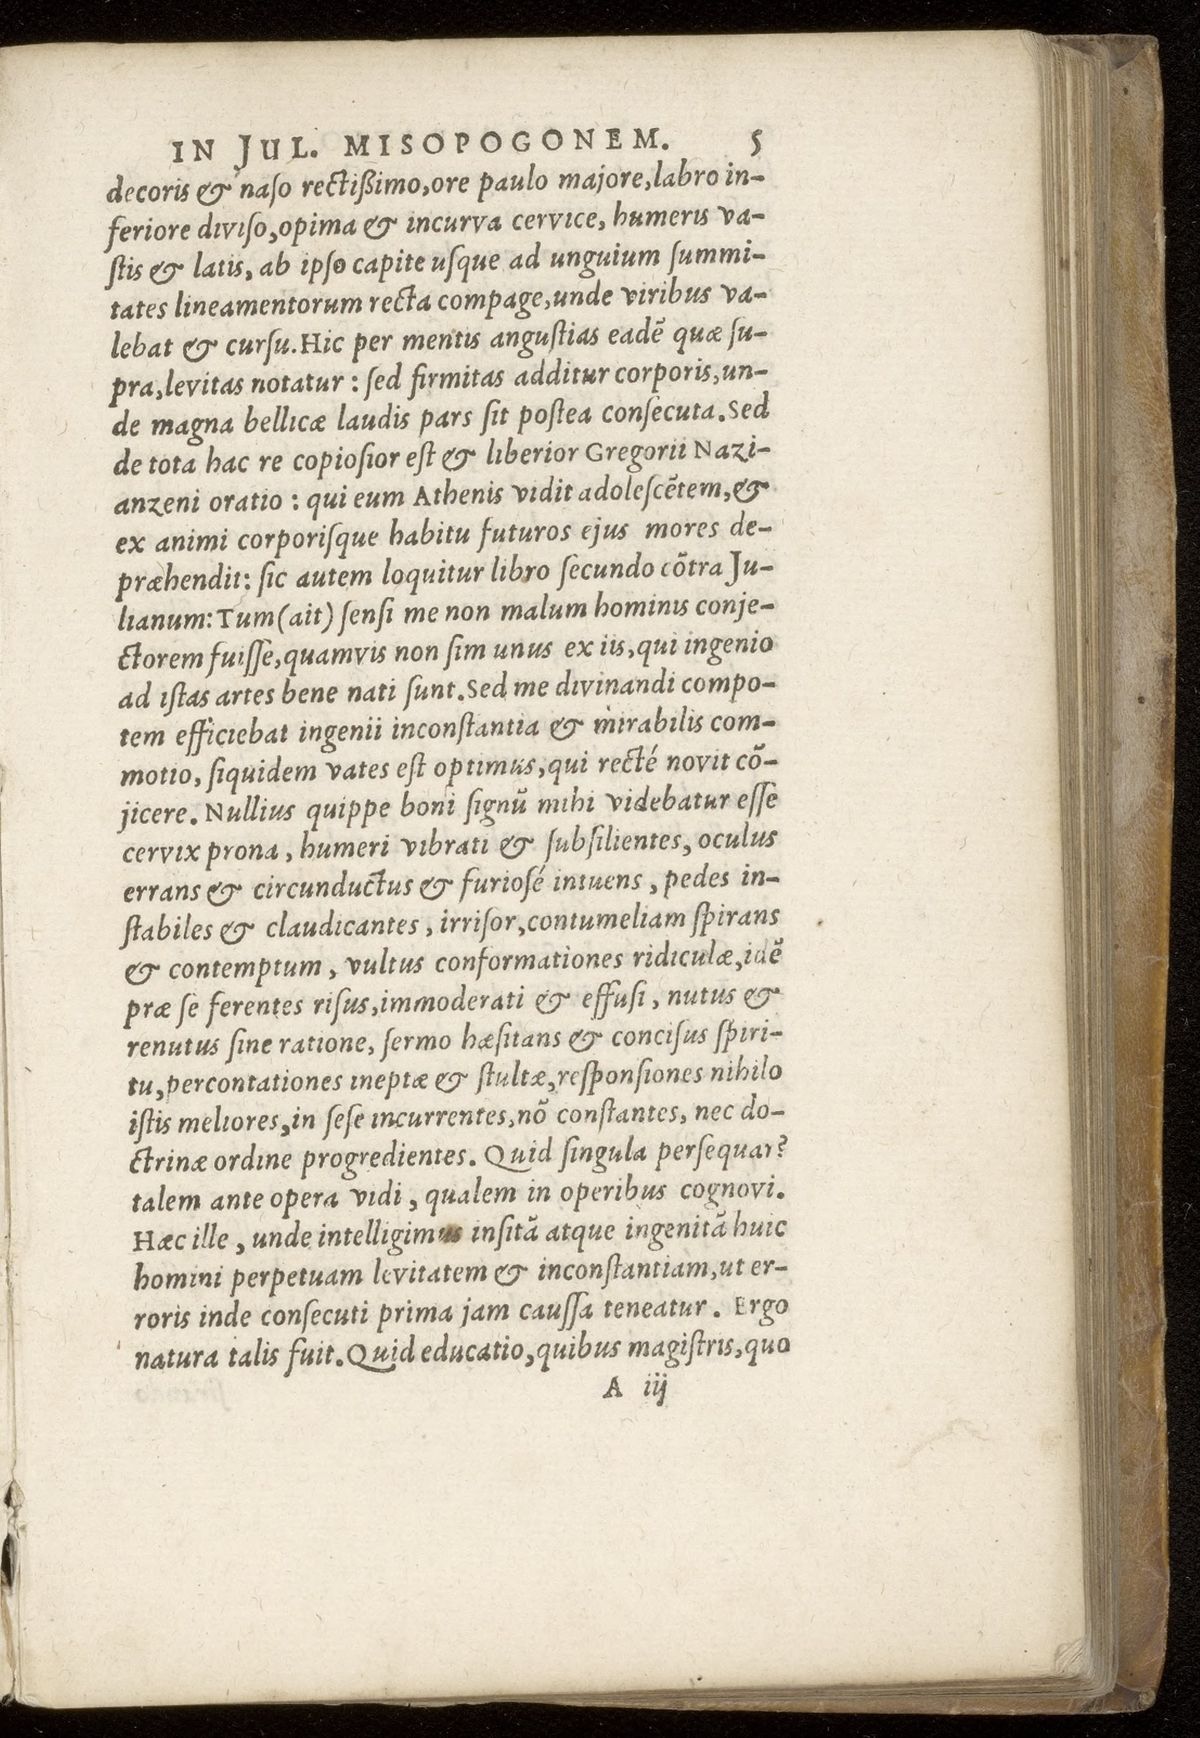 IN JUL. MISOPOGONEM. 5
decoris & naſo rectißimo, ore paulo majore, labro in-
feriore diviſo, opima & incurva cervice, humeris va-
ſtis & latis, ab ipſo capite uſque ad unguium ſummi-
tates lineamentorum recta compage, unde viribus va-
lebat & curſu. Hic per mentis anguſtias eadē quæ ſu-
pra, levitas notatur: ſed firmitas additur corporis, un-
de magna bellicæ laudis pars ſit poſtea conſecuta. Sed
de tota hac re copioſior eſt & liberior Gregorii Nazi-
anzeni oratio: qui eum Athenis vidit adoleſcētem, &
ex animi corporiſque habitu futuros ejus mores de-
præhendit: ſic autem loquitur libro ſecundo cōtra Ju-
lianum: Tum (ait) ſenſi me non malum hominis conje-
ctorem fuiſſe, quamvis non ſim unus ex iis, qui ingenio
ad iſtas artes bene nati ſunt. Sed me divinandi compo-
tem efficiebat ingenii inconſtantia & mirabilis com-
motio, ſiquidem vates eſt optimus, qui recté novit cō-
jicere. Nullius quippe boni ſignū mihi videbatur eſſe
cervix prona, humeri vibrati & ſubſilientes, oculus
errans & circunductus & furioſé intuens, pedes in-
ſtabiles & claudicantes, irriſor, contumeliam ſpirans
& contemptum, vultus conformationes ridiculæ, idē
præ ſe ferentes riſus, immoderati & effuſi, nutus &
renutus ſine ratione, ſermo hæſitans & conciſus ſpiri-
tu, percontationes ineptæ & ſtultæ, reſponſiones nihilo
iſtis meliores, in ſeſe incurrentes, nō conſtantes, nec do-
ctrinæ ordine progredientes. Quid ſingula perſequar?
talem ante opera vidi, qualem in operibus cognovi.
Hæc ille, unde intelligimus inſitā atque ingenitā huic
homini perpetuam levitatem & inconſtantiam, ut er-
roris inde conſecuti prima jam cauſſa teneatur. Ergo
natura talis fuit. Quid educatio, quibus magiſtris, quo
A iij